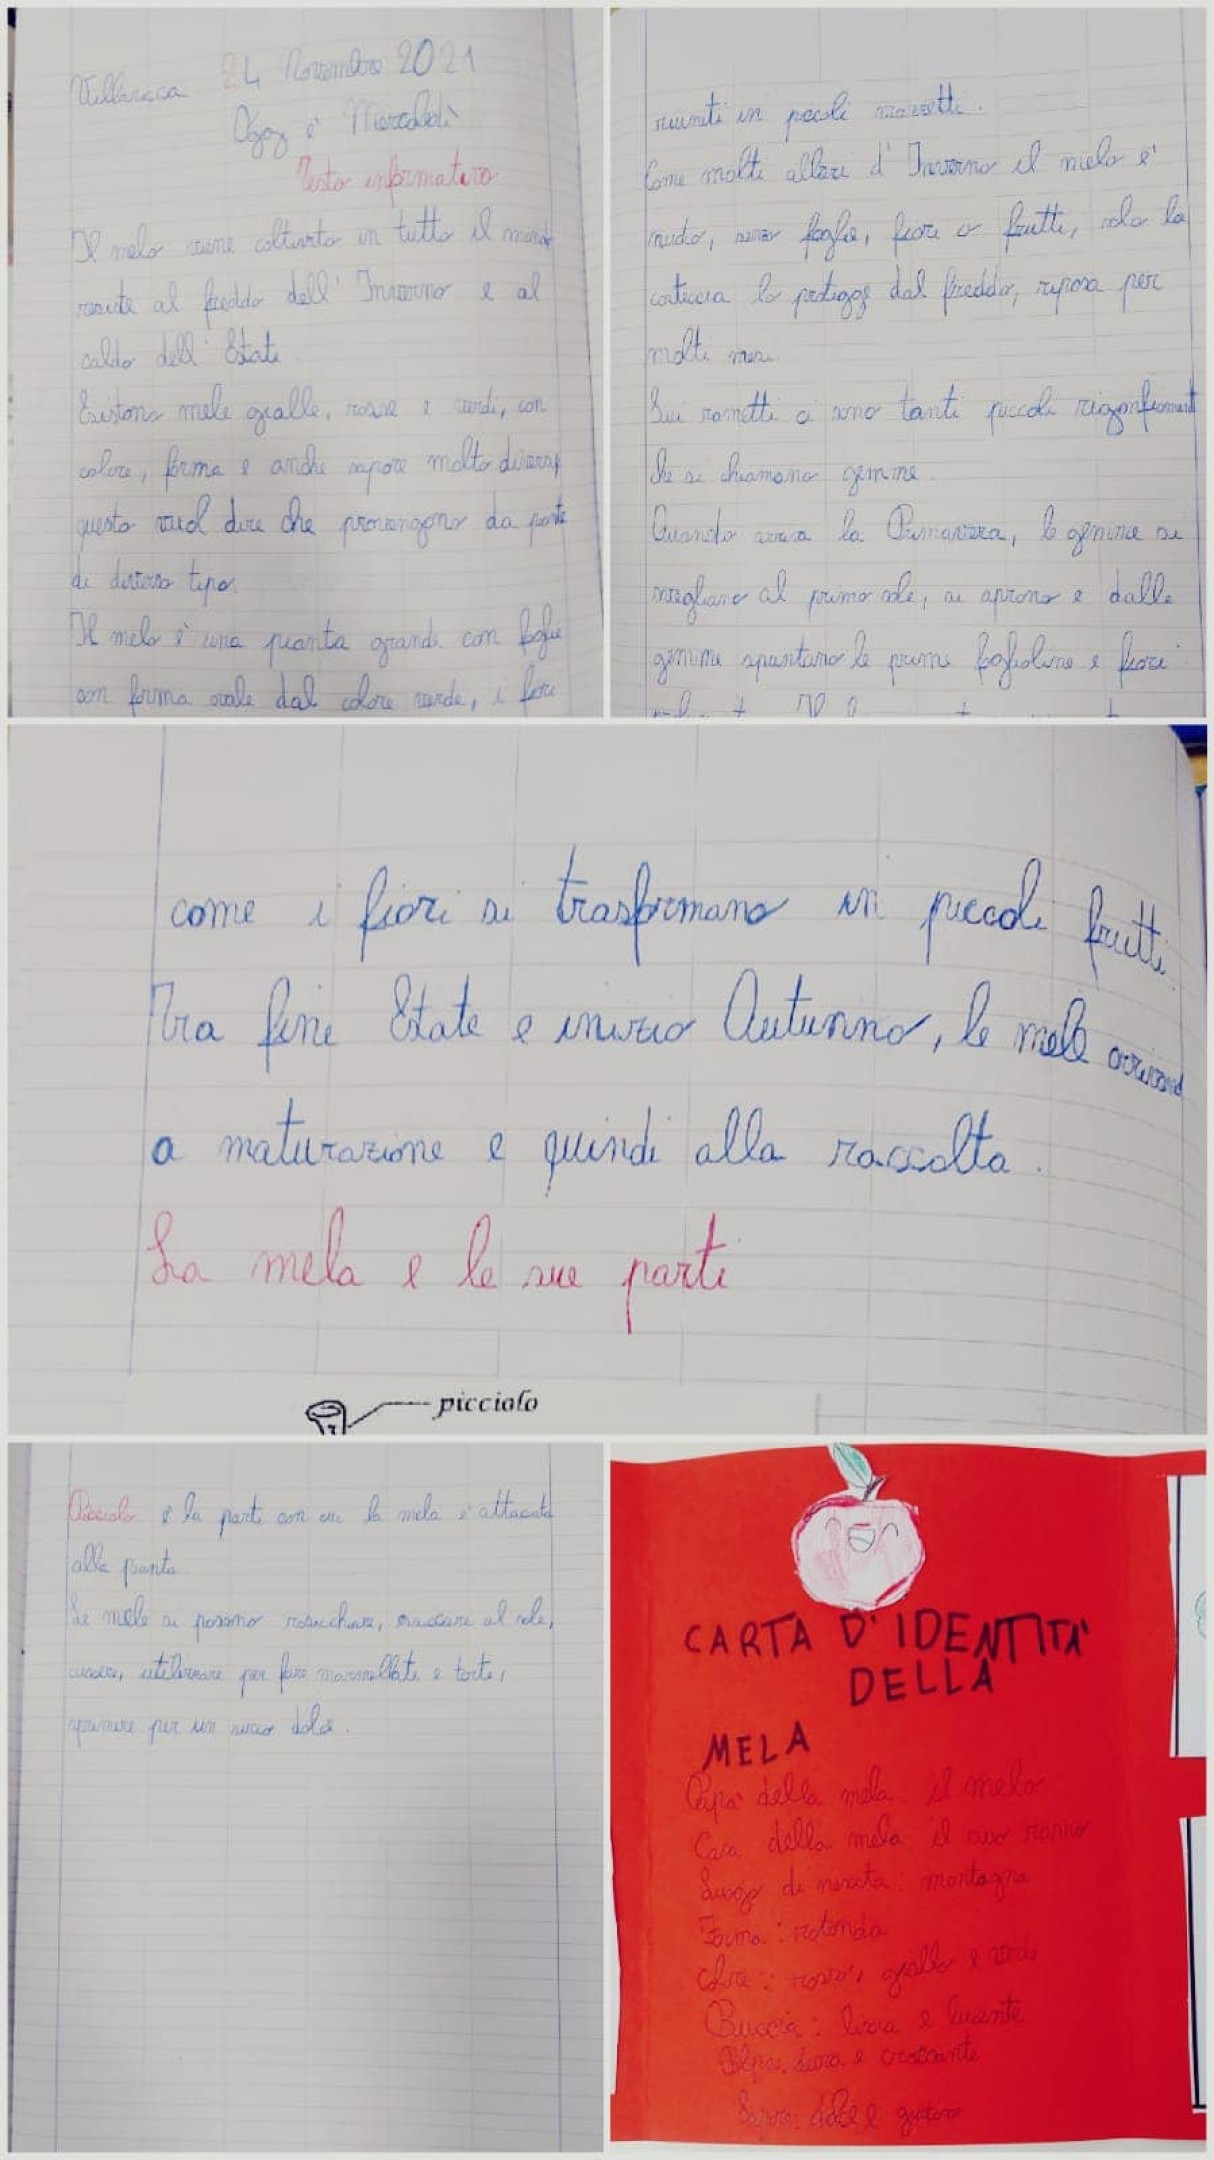 24 Novembre 2021
Oggi è Mercoledì
Testo informativo
Il melo viene coltivato in tutto il mondo
resiste al freddo dell' Inverno e al
caldo dell' Estate
Esistono mele gialle, rosse e verdi, con
colore, forma e anche sapore molto diversi,
questo vuol dire che provengono da piante
di diverso tipo.
Il melo è una pianta grande con foglie
con forma ovale dal colore verde, i fiori
riuniti in piccoli mazzetti.
Come molti alberi d' Inverno il melo è
nudo, senza foglie, fiori o frutti, solo la
corteccia lo protegge dal freddo, riposa per
molti mesi.
Sui rametti ci sono tanti piccoli rigonfiamenti
che si chiamano gemme.
Quando arriva la Primavera, le gemme si
svegliano al primo sole, si aprono e dalle
gemme spuntano le prime foglioline e fiori
come i fiori si trasformano in piccoli frutti.
Tra fine Estate e inizio Autunno, le mele arrivano
a maturazione e quindi alla raccolta.
La mela e le sue parti
picciolo
Picciolo: è la parte con cui la mela è attaccata
alla pianta.
Le mele si possono rosicchiare, essiccare al sole,
cuocere, utilizzare per fare marmellate e torte,
spremere per un succo dolce.
CARTA D'IDENTITÀ
DELLA
MELA
Papà della mela: il melo
Casa della mela: il suo ramo
Luogo di nascita: montagna
Forma: rotonda
Colore: rosso, giallo e verde
Buccia: liscia e lucente
Polpa: dura e croccante
Sapore: dolce e gustoso